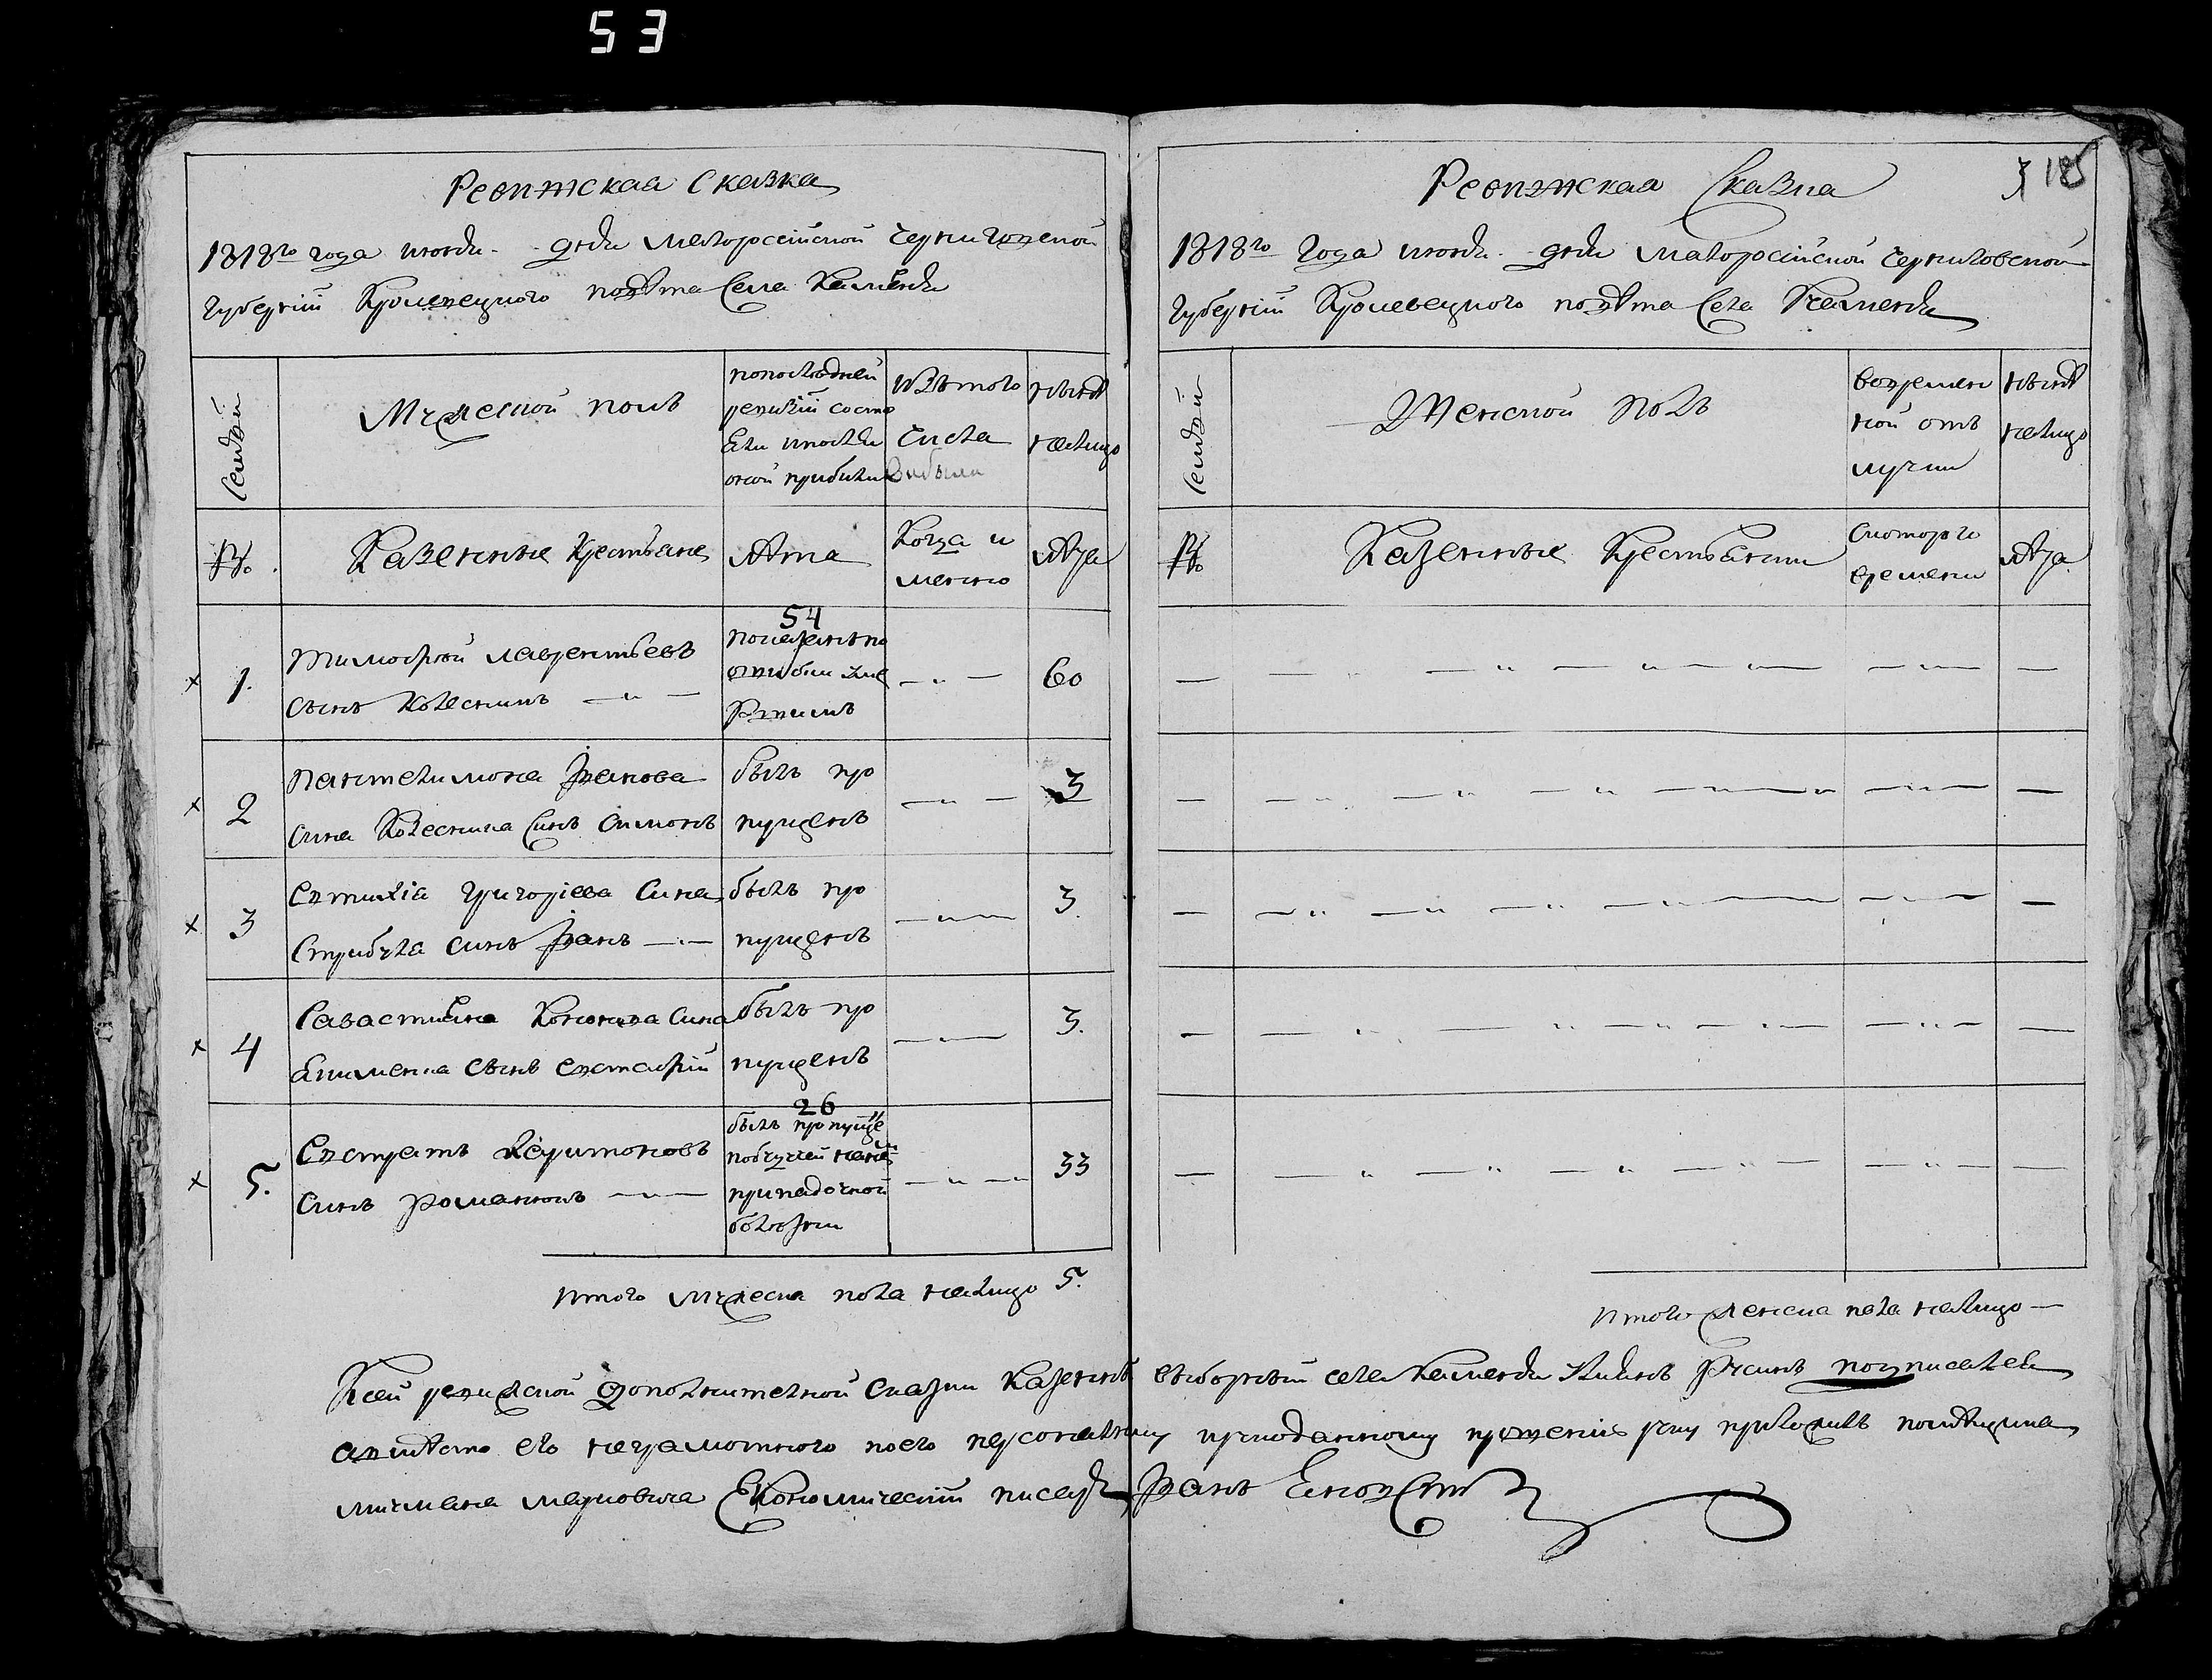 53
Ревижская Сказка
1818го года июня - дня малороссійской Черниговской
губерніи Кролевецкого повѣта Села Каменки
Семьи
Мужеской полъ
попослѣдней
ревизіи состо
яли ипослѣ
оной прибыли
изътого
числа
выбыли
нынѣ
налицо
№.
Казенные Крестьяне
лѣта
Когда и
менно
лѣта
1.
Тимофей лавреньтьевъ
сынъ Колесникъ
54
показанъпо
ошибки
60
2
Пантелимона Іванова
сина Колесника Синъ Симонъ
былъ про
пущенъ
3
3
Евтихія григоріева Сина
Стрибула синъ Іванъ
былъ про
пущенъ
3.
4
Савастияна Кононова сина
Якименка сынъ евстафій
былъ про
пущенъ
3.
5.
Евстратъ Харитоновъ
Синъ романюкъ
26
былъ пропуще
послучаю
припадочной
болезни
33
Итого мужеска пола налицо 5.
Ревижская Сказка
185
1818го Года июня - дня малоросійской Черниговской
губерніи Кролевецкого повѣта Села Каменки
Семьи
Женской Полъ
вовремен
ной отъ
лучки
нынѣ
налицо
№
Казенные Крестьянки
скоторого
времени
лѣта
Итого женска пола налицо —
Ксей ревижской дополнителной сказки казенный виборный села Каменки подписался
авмѣсто его неграмотного поего персоналному прошенію руку приложилъ помѣщика
мичмана марковича Економический писарь Іванъ